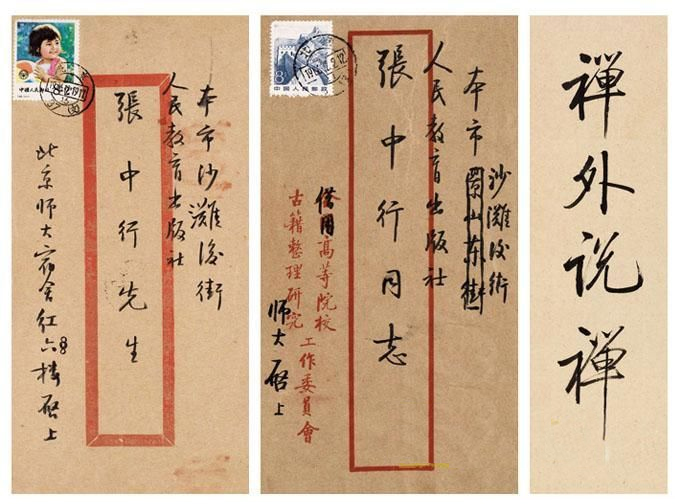 本市沙灘後街
人民教育出版社
張中行先生
北京师大宿舍红六楼啓上
8
沙灘後街
本市景山东街
人民教育出版社
張中行同志
借用高等院校
古籍整理研究
工作委員會
师大啓上
8
中国人民邮政
禪外说禪